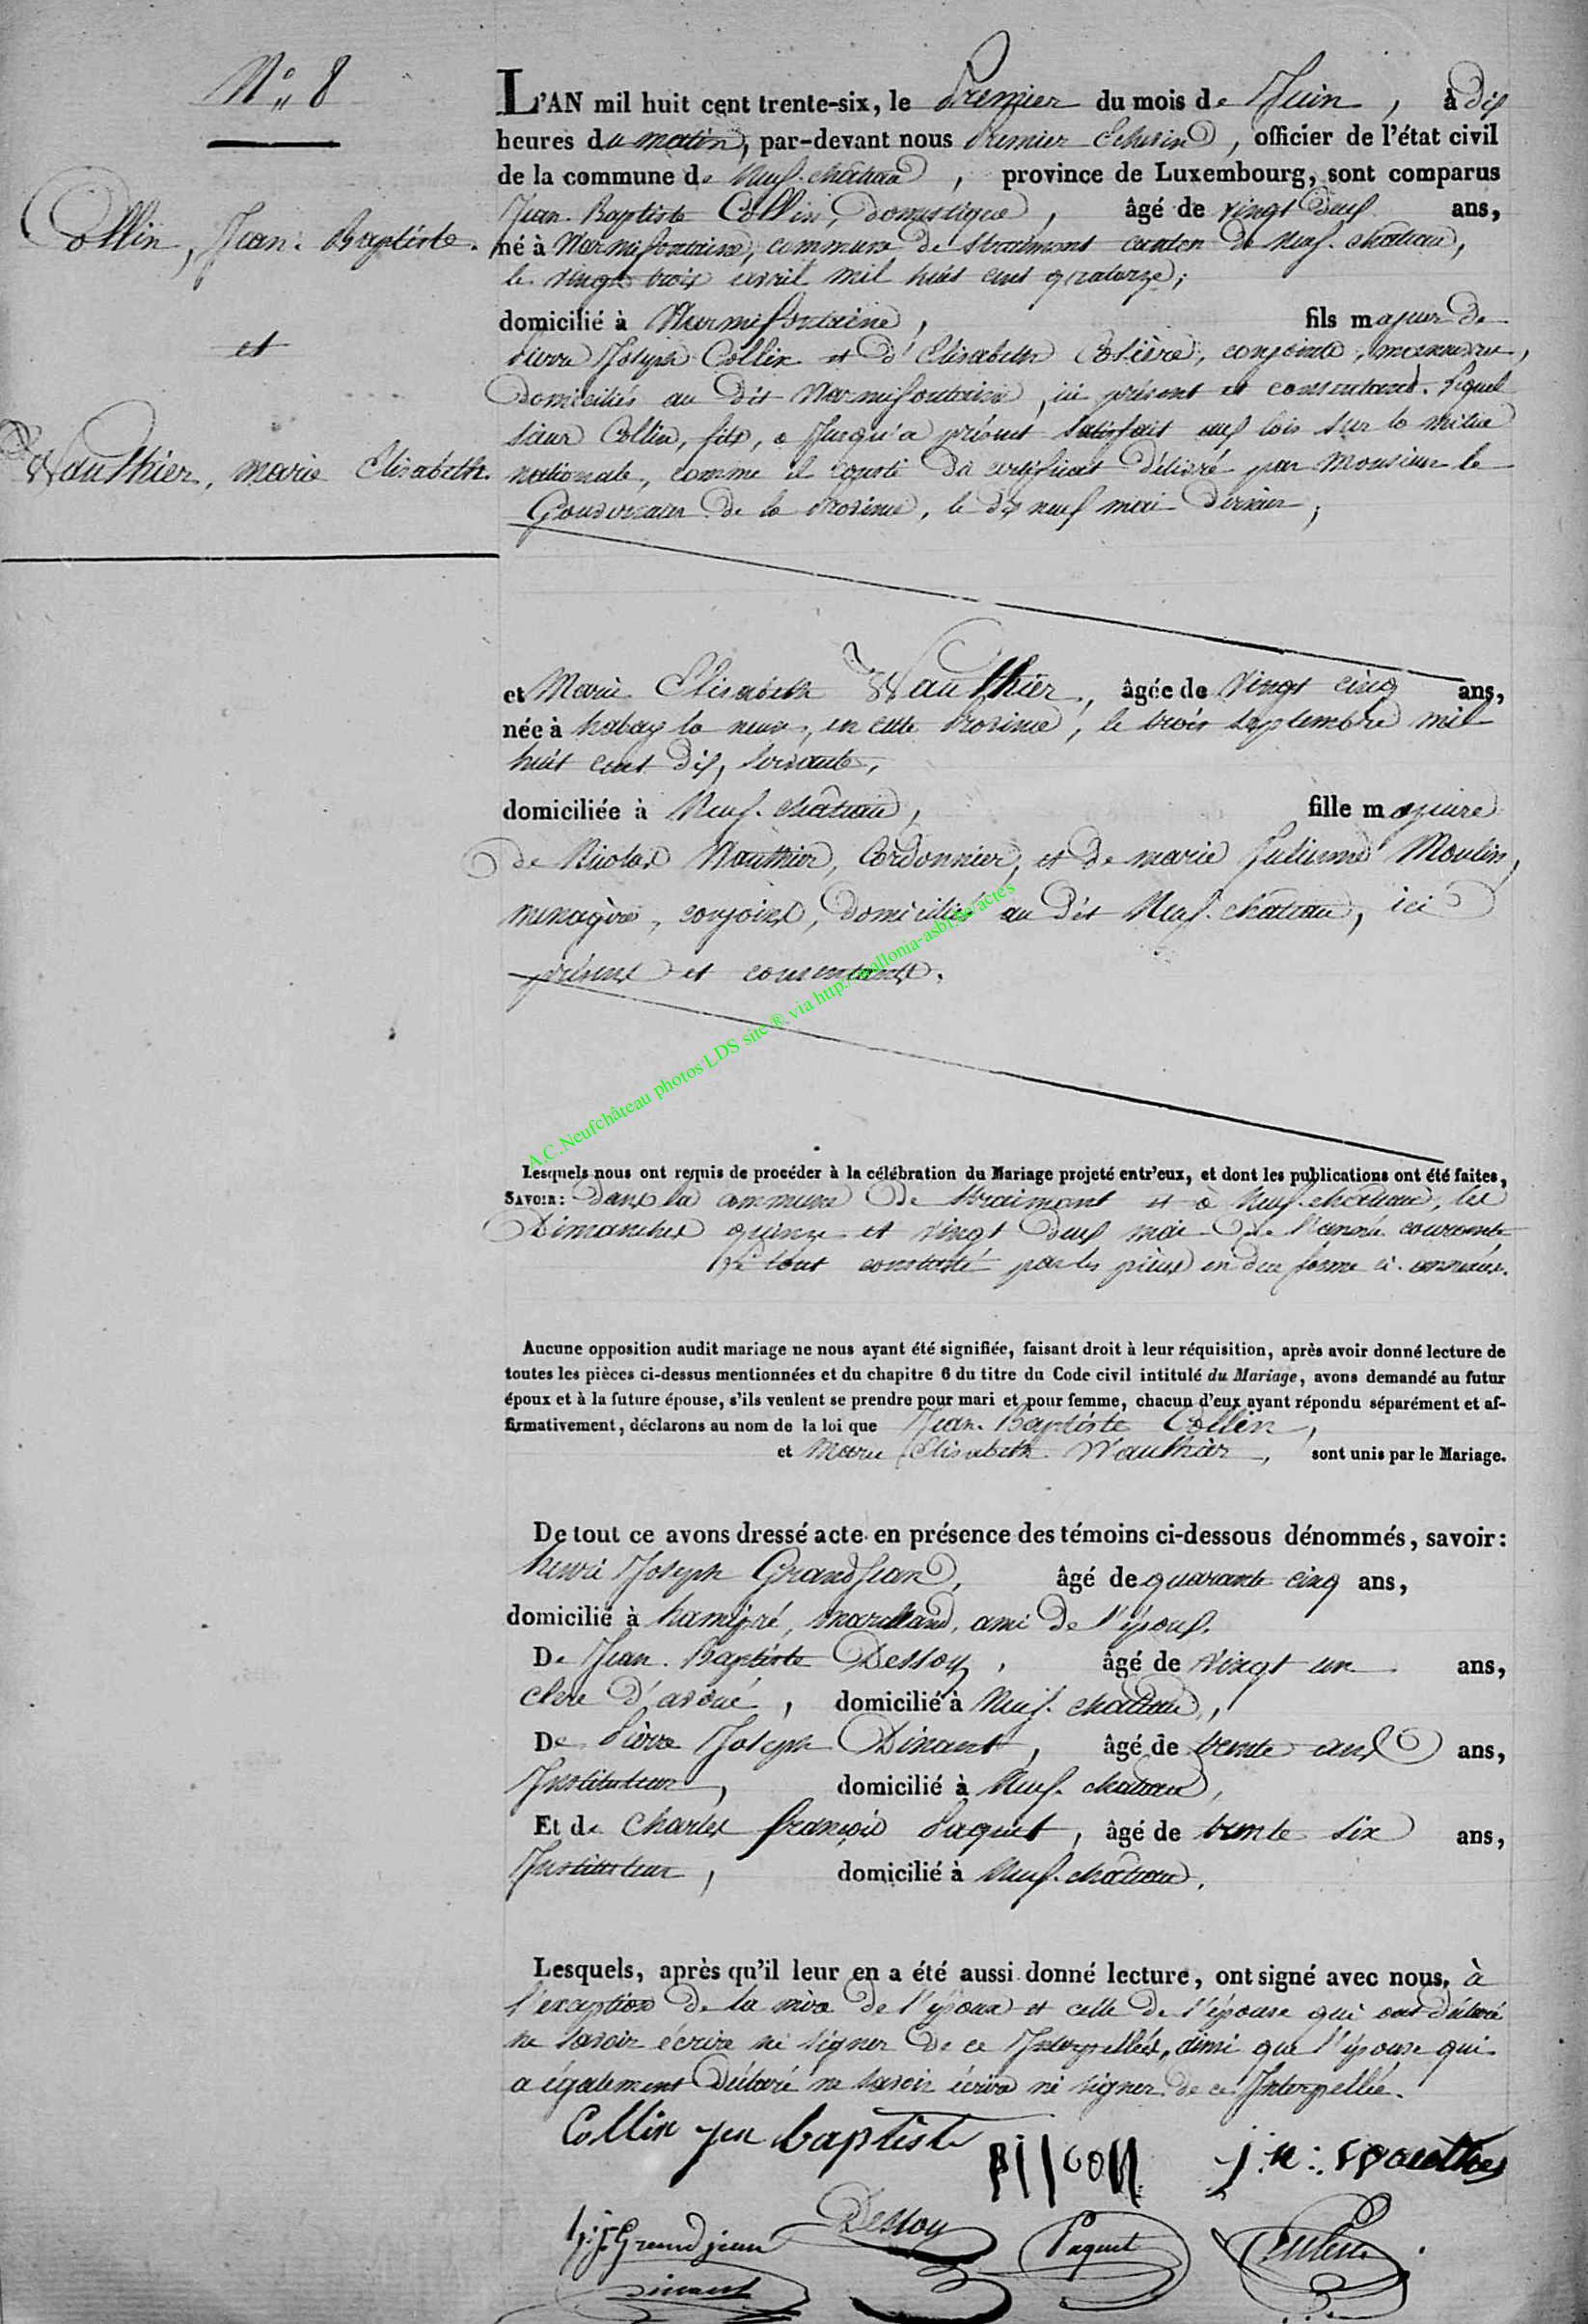 N° 8
Collin, Jean-Baptiste.
et
Wauthier, marie Elisabeth.
L'AN mil huit cent trente-six, le Premier du mois de Juin, à dix
heures du matin, par-devant nous Premier Echevin, officier de l'état civil
de la commune de Neuf-château, province de Luxembourg, sont comparus
Jean-Baptiste Collin, Domestique, âgé de vingt deux ans,
né à Warmifontaine, commune de Straimont canton de Neuf-château,
le vingt trois avril mil huit cent quatorze;
domicilié à Warmifontaine, fils majeur de
Pierre Joseph Collin et d'Elisabeth conjoints,
Domiciliés au dit Warmifontaine, ici présent et consentant. Lequel
sieur Collin, fils, a Jusqu'a présent satisfait aux lois sur la milice
nationale, comme il conste du certificat délivré par Monsieur le
Gouverneur de la Province, le dix neuf mai dernier,
et Marie Elisabeth Wauthier, âgée de vingt cinq ans,
née à habay la neuve, en cette Province, le trois septembre mil
huit cent dix, servante,
domiciliée à Neuf-château, fille majeure
de Nicolas Wauthier, Cordonnier, et de marie Julienne Moulin,
menagère, conjoints, domiciliés au dit Neuf-château, ici
présens et consentants.
A.C.Neufchâteau photos LDS site ® via http://wallonia-asbl.be/actes
Lesquels nous ont requis de procéder à la célébration du Mariage projeté entr'eux, et dont les publications ont été faites,
SAVOIR: Dans la commune de Straimont et à Neuf-château, les
Dimanches quinze et vingt deux mai de l'année courante
le tout constaté par les pièces en due forme ci-annexées.
Aucune opposition audit mariage ne nous ayant été signifiée, faisant droit à leur réquisition, après avoir donné lecture de
toutes les pièces ci-dessus mentionnées et du chapitre 6 du titre du Code civil intitulé du Mariage, avons demandé au futur
époux et à la future épouse, s'ils veulent se prendre pour mari et pour femme, chacun d'eux ayant répondu séparément et af-
firmativement, déclarons au nom de la loi que Jean-Baptiste Collin,
et Marie Elisabeth Wauthier, sont unis par le Mariage.
De tout ce avons dressé acte en présence des témoins ci-dessous dénommés, savoir:
henri Joseph GrandJean, âgé de quarante cinq ans,
domicilié à hamipré, marchand, ami de l'époux.
De Jean-Baptiste Dessoy, âgé de vingt un ans,
clerc d'avoué, domicilié à Neuf-château,
De Pierre Joseph Dinant, âgé de trente ans,
Instituteur, domicilié à Neuf-château,
Et de Charles françois Paquet, âgé de trente six ans,
Instituteur, domicilié à Neuf-château.
Lesquels, après qu'il leur en a été aussi donné lecture, ont signé avec nous, à
l'exception de la mère de l'époux et celle de l'épouse qui ont déclaré
ne savoir écrire ni signer de ce Interpellées, ainsi que l'épouse qui
a également déclaré ne savoir écrire ni signer de ce Interpellée.
Collin jen baptist
j: n: wauthier
h: j: Grandjean Dessoy Paquet
Dinant